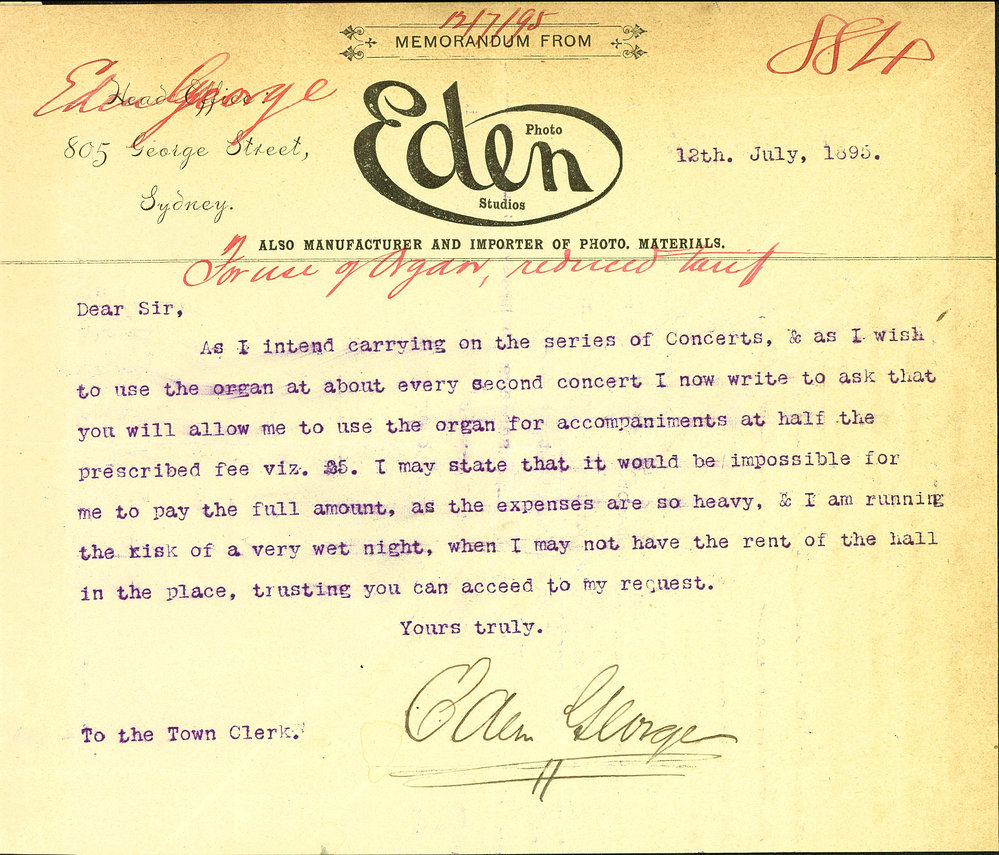 12/7/95
MEMORANDUM FROM
884
Eden George
Head Office:
805 George Street,
Sydney.
Eden
Photo
Studios
12th. July, 1895.
ALSO MANUFACTURER AND IMPORTER OF PHOTO. MATERIALS.
For use of Organ, reduced tarif
Dear Sir,
As I intend carrying on the series of Concerts, & as I wish
to use the organ at about every second concert I now write to ask that
you will allow me to use the organ for accompaniments at half the
prescribed fee viz. £5. I may state that it would be impossible for
me to pay the full amount, as the expenses are so heavy, & I am running
the risk of a very wet night, when I may not have the rent of the hall
in the place, trusting you can acceed to my request.
Yours truly.
Eden George
To the Town Clerk.